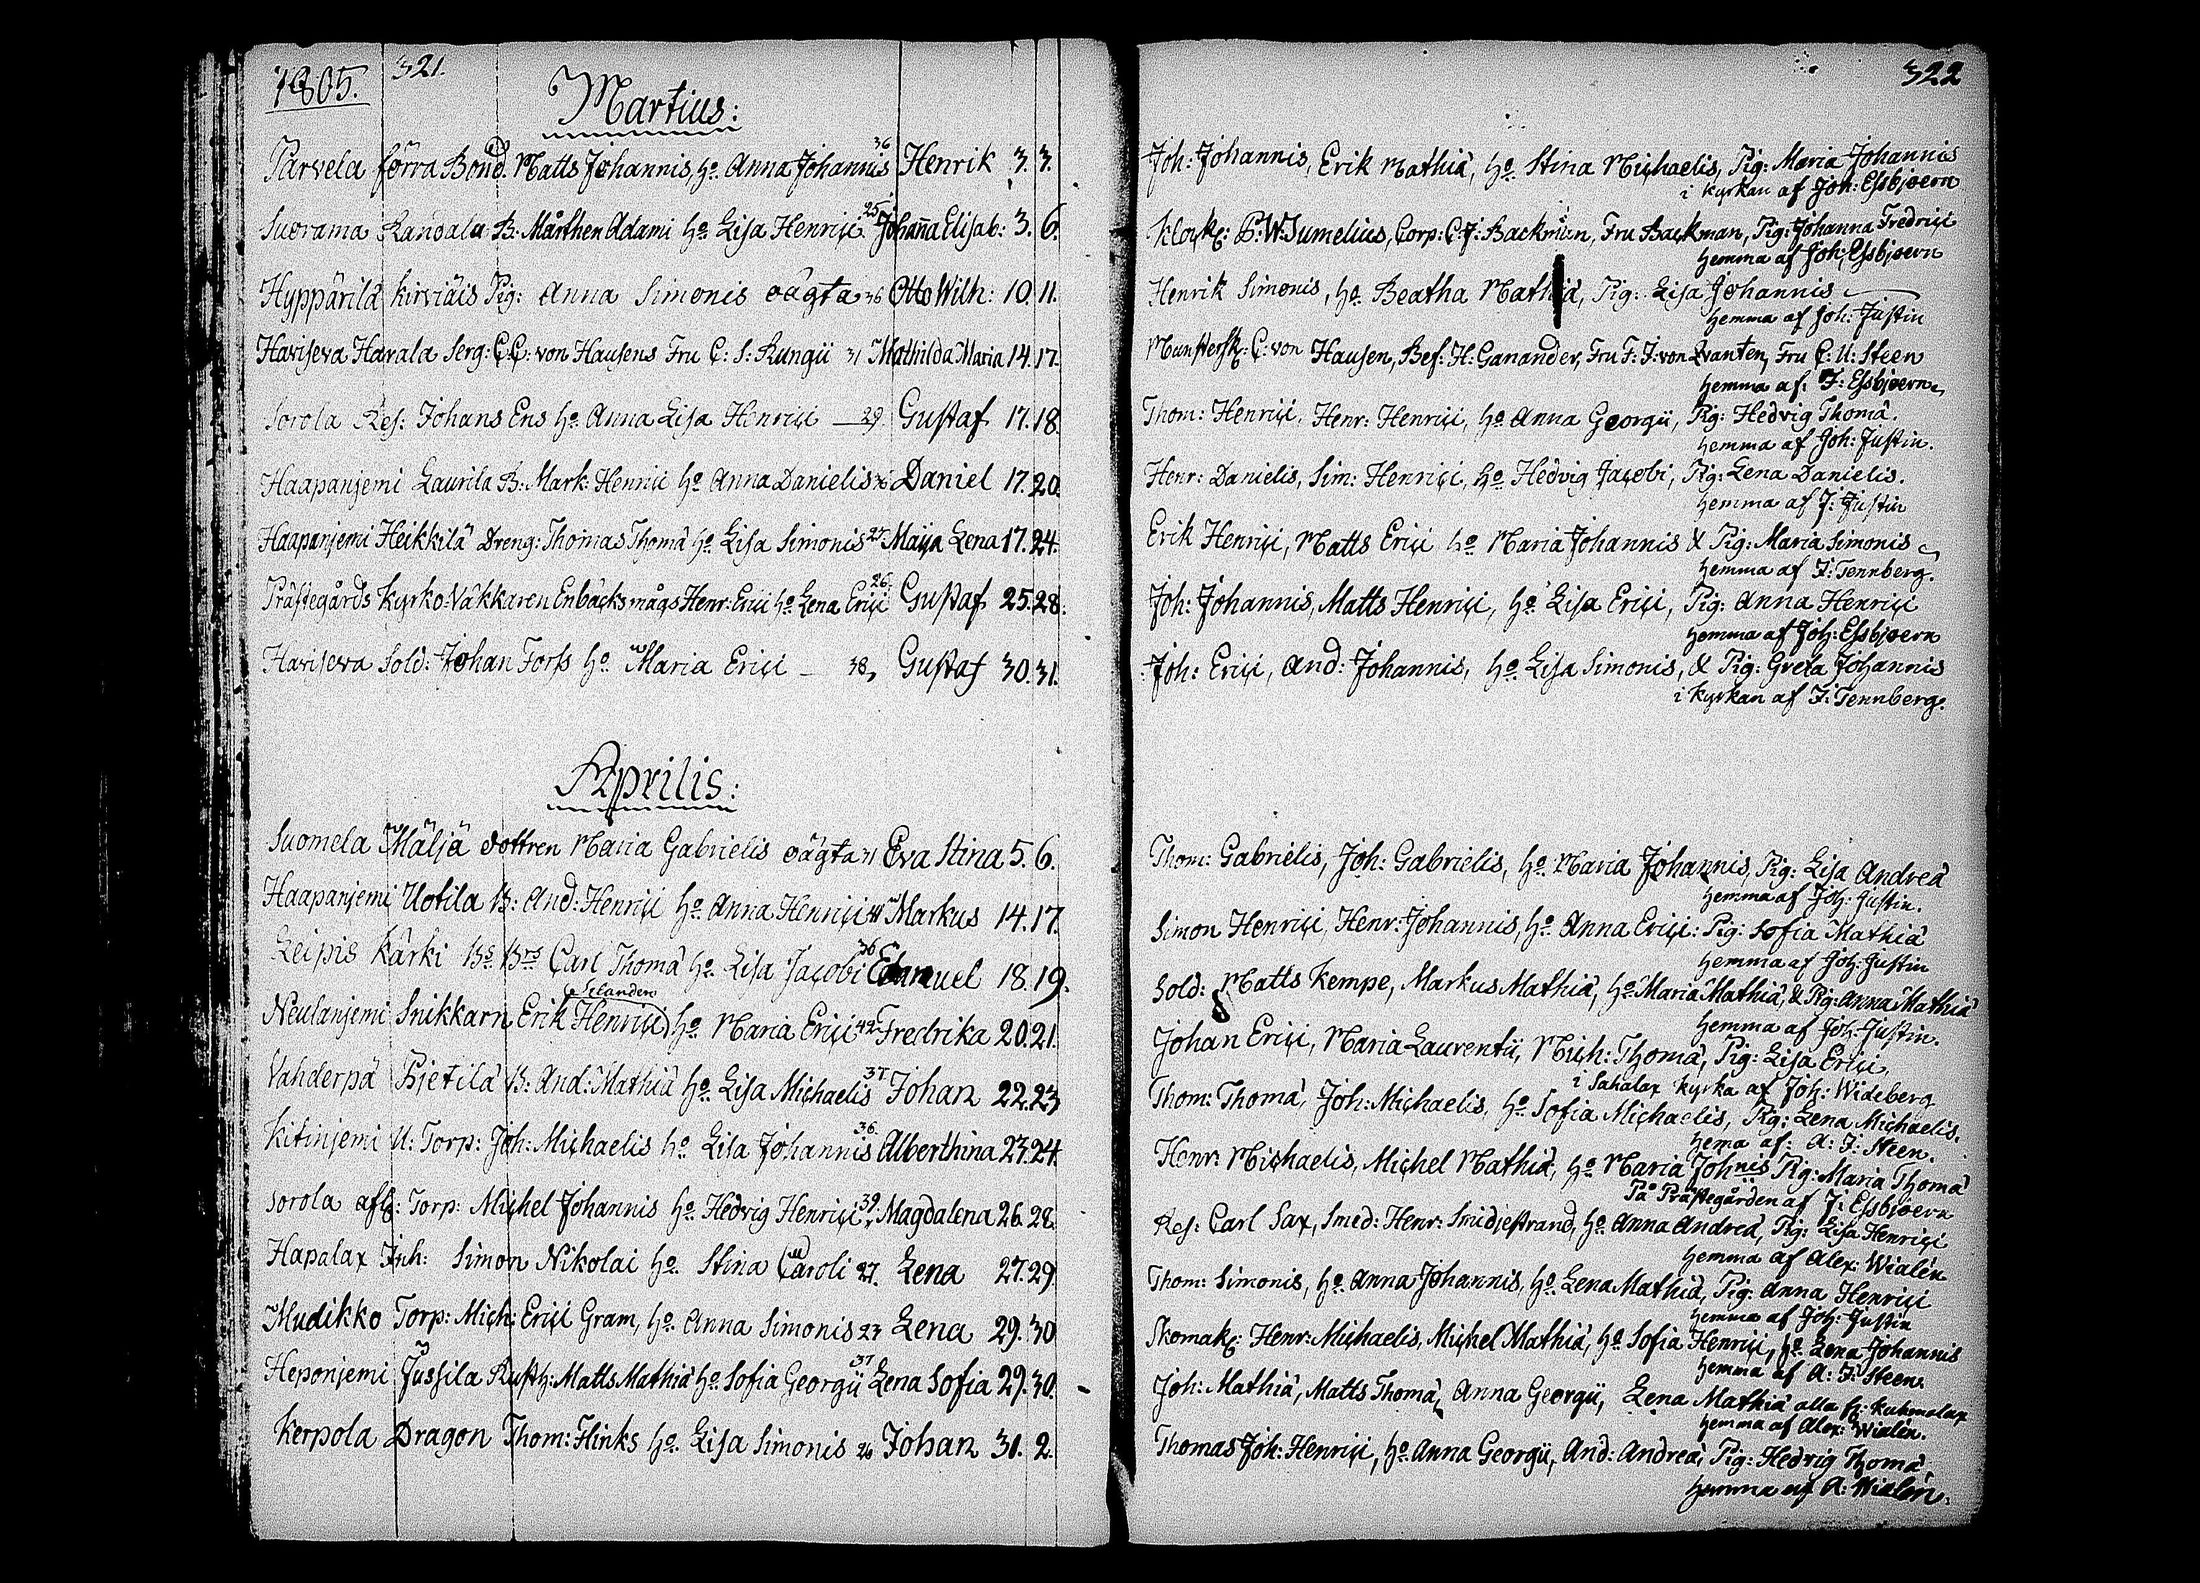 1805. 321.
Martius:
Parvela förra Bond. Matts Johannis, ho. Anna Johannis 36 Henrik 3. 3.
Suorama Randala B: Mårthen Adami ho Lisa Henrici 25 Johanna Elisab: 3. 6.
Hyppärilä Kirviäis Pig: Anna Simonis oägta 36 Otto Wilh: 10. 11.
Haviseva Harala Serg: C: C: von Hausens Fru C: S: Rungii 31 Mathilda Maria 14. 17.
Sorola Res: Johans Ens ho Anna Lisa Henrici — 29. Gustaf 17. 18.
Haapanjemi Laurila B: Mark: Henrici ho Anna Danielis Daniel 17. 20.
Haapanjemi Heikkilä Dreng: Thomas Thomæ ho Lisa Simonis 27 Maija Lena 17. 24.
Prästegårds Kyrko-Väkkaren Enbäcks mågs Henr: Erici ho Lena Erici 26. Gustaf 25. 28.
Haviseva Sold: Johan Forss ho Maria Erici — 38, Gustaf 30. 31.
Aprilis:
Suomela Mäljä dottren Maria Gabrielis oägta 31 Eva Stina 5. 6.
Haapanjemi Uotila B: And: Henrici ho Anna Henrici Markus 14. 17.
Leipis Kärki Bs Bro Carl Thomæ ho Lisa Jacobi 36 Emanuel 18. 19.
Neulanjemi Snikkarn Erik Henrici Selanden ho Maria Erici 42 Fredrika 20. 21.
Vahderpä Pjetilä B: And: Mathiæ ho Lisa Michaelis 37 Johan 22. 23
Kitinjemi U: Torp: Joh: Michaelis ho Lisa Johannis 36. Alberthina 23. 24.
Sorola afsk: Torp: Michel Johannis ho Hedvig Henrici 39. Magdalena 26. 28.
Hapalax Inh: Simon Nikolai ho Stina Caroli 27. Lena 27. 29.
Mudikko Torp: Mich: Erici Gram, ho Anna Simonis 23 Lena 29. 30.
Heponjemi Jussila Rusth: Matts Mathiæ ho Sofia Georgii 37 Lena Sofia 29. 30.
Kerpola Dragon Thom: Flinks ho Lisa Simonis Johan 31. 2.
322
Joh: Johannis, Erik Mathiæ, ho Stina Michaelis, Pig: Maria Johannis
i kyrkan af Joh: Essbjoern
Klock: B: W: Sumelius, Corp: C: J: Backman, Fru Backman, Pig: Johanna Fredrici
hemma af Joh: Essbjoern
Henrik Simonis, ho. Beatha Mathiæ, Pig: Lisa Johannis
hemma af Joh: Justin
Munstersk: C: von Hausen, Bef: H: Ganander, Fru F: J: von Qvanten, Fru C: U: Steen
hemma af: J: Essbjoern
Thom: Henrici, Henr: Henrici, ho Anna Georgii, Pig: Hedvig Thomæ.
hemma af Joh: Justin.
Henr: Danielis, Sim: Henrici, ho Hedvig Jacobi, Pig: Lena Danielis.
hemma af J: Justin
Erik Henrici, Matts Erici ho Maria Johannis & Pig: Maria Simonis
hemma af J: Tennberg.
Joh: Johannis, Matts Henrici, ho Lisa Erici, Pig: Anna Henrici
hemma af Joh: Essbjoern
Joh: Erici, And: Johannis, ho Lisa Simonis, & Pig: Greta Johannis
i kyrkan af J: Tennberg.
Thom: Gabrielis, Joh: Gabrielis, ho Maria Johannis, Pig: Lisa Andreæ
hemma af Joh: Justin.
Simon Henrici, Henr: Johannis, ho Anna Erici: Pig: Sofia Mathiæ
hemma af Joh: Justin
Sold: Matts Kempe, Markus Mathiæ, ho Maria Mathiæ, & Pig: Anna Mathiæ
hemma af Joh: Justin.
Johan Erici, Maria Laurentii, Mich: Thomæ, Pig: Lisa Erici,
i Sahalax kyrka af Joh: Wideberg
Thom: Thomæ, Joh: Michaelis, ho Sofia Michaelis, Pig: Lena Michaelis.
hema af: A: J: Steen.
Henr: Michaelis, Michel Mathiæ, ho Maria Johnis Pig: Maria Thomæ
På Prästegården af J: Essbjoern
Res: Carl Sax, Smed: Henr: Smidjestrand, ho Anna Andreæ, Pig: Lisa Henrici
hemma af Alex: Wialén
Thom: Simonis, ho Anna Johannis, ho Lena Mathiæ, Pig: Anna Henrici
hemma af Joh: Justin
Skomak: Henr: Michaelis, Michel Mathiæ, ho Sofia Henrici, ho Lena Johannis
hemma af A: J: Steen.
Joh: Mathiæ, Matts Thomæ, Anna Georgii, Lena Mathiæ alla fr: Kuhmalax
hemma af Alex: Wialén.
Thomas Joh: Henrici, ho Anna Georgii, And: Andreæ, Pig: Hedvig Thomæ,
hemma af A: Wialén.